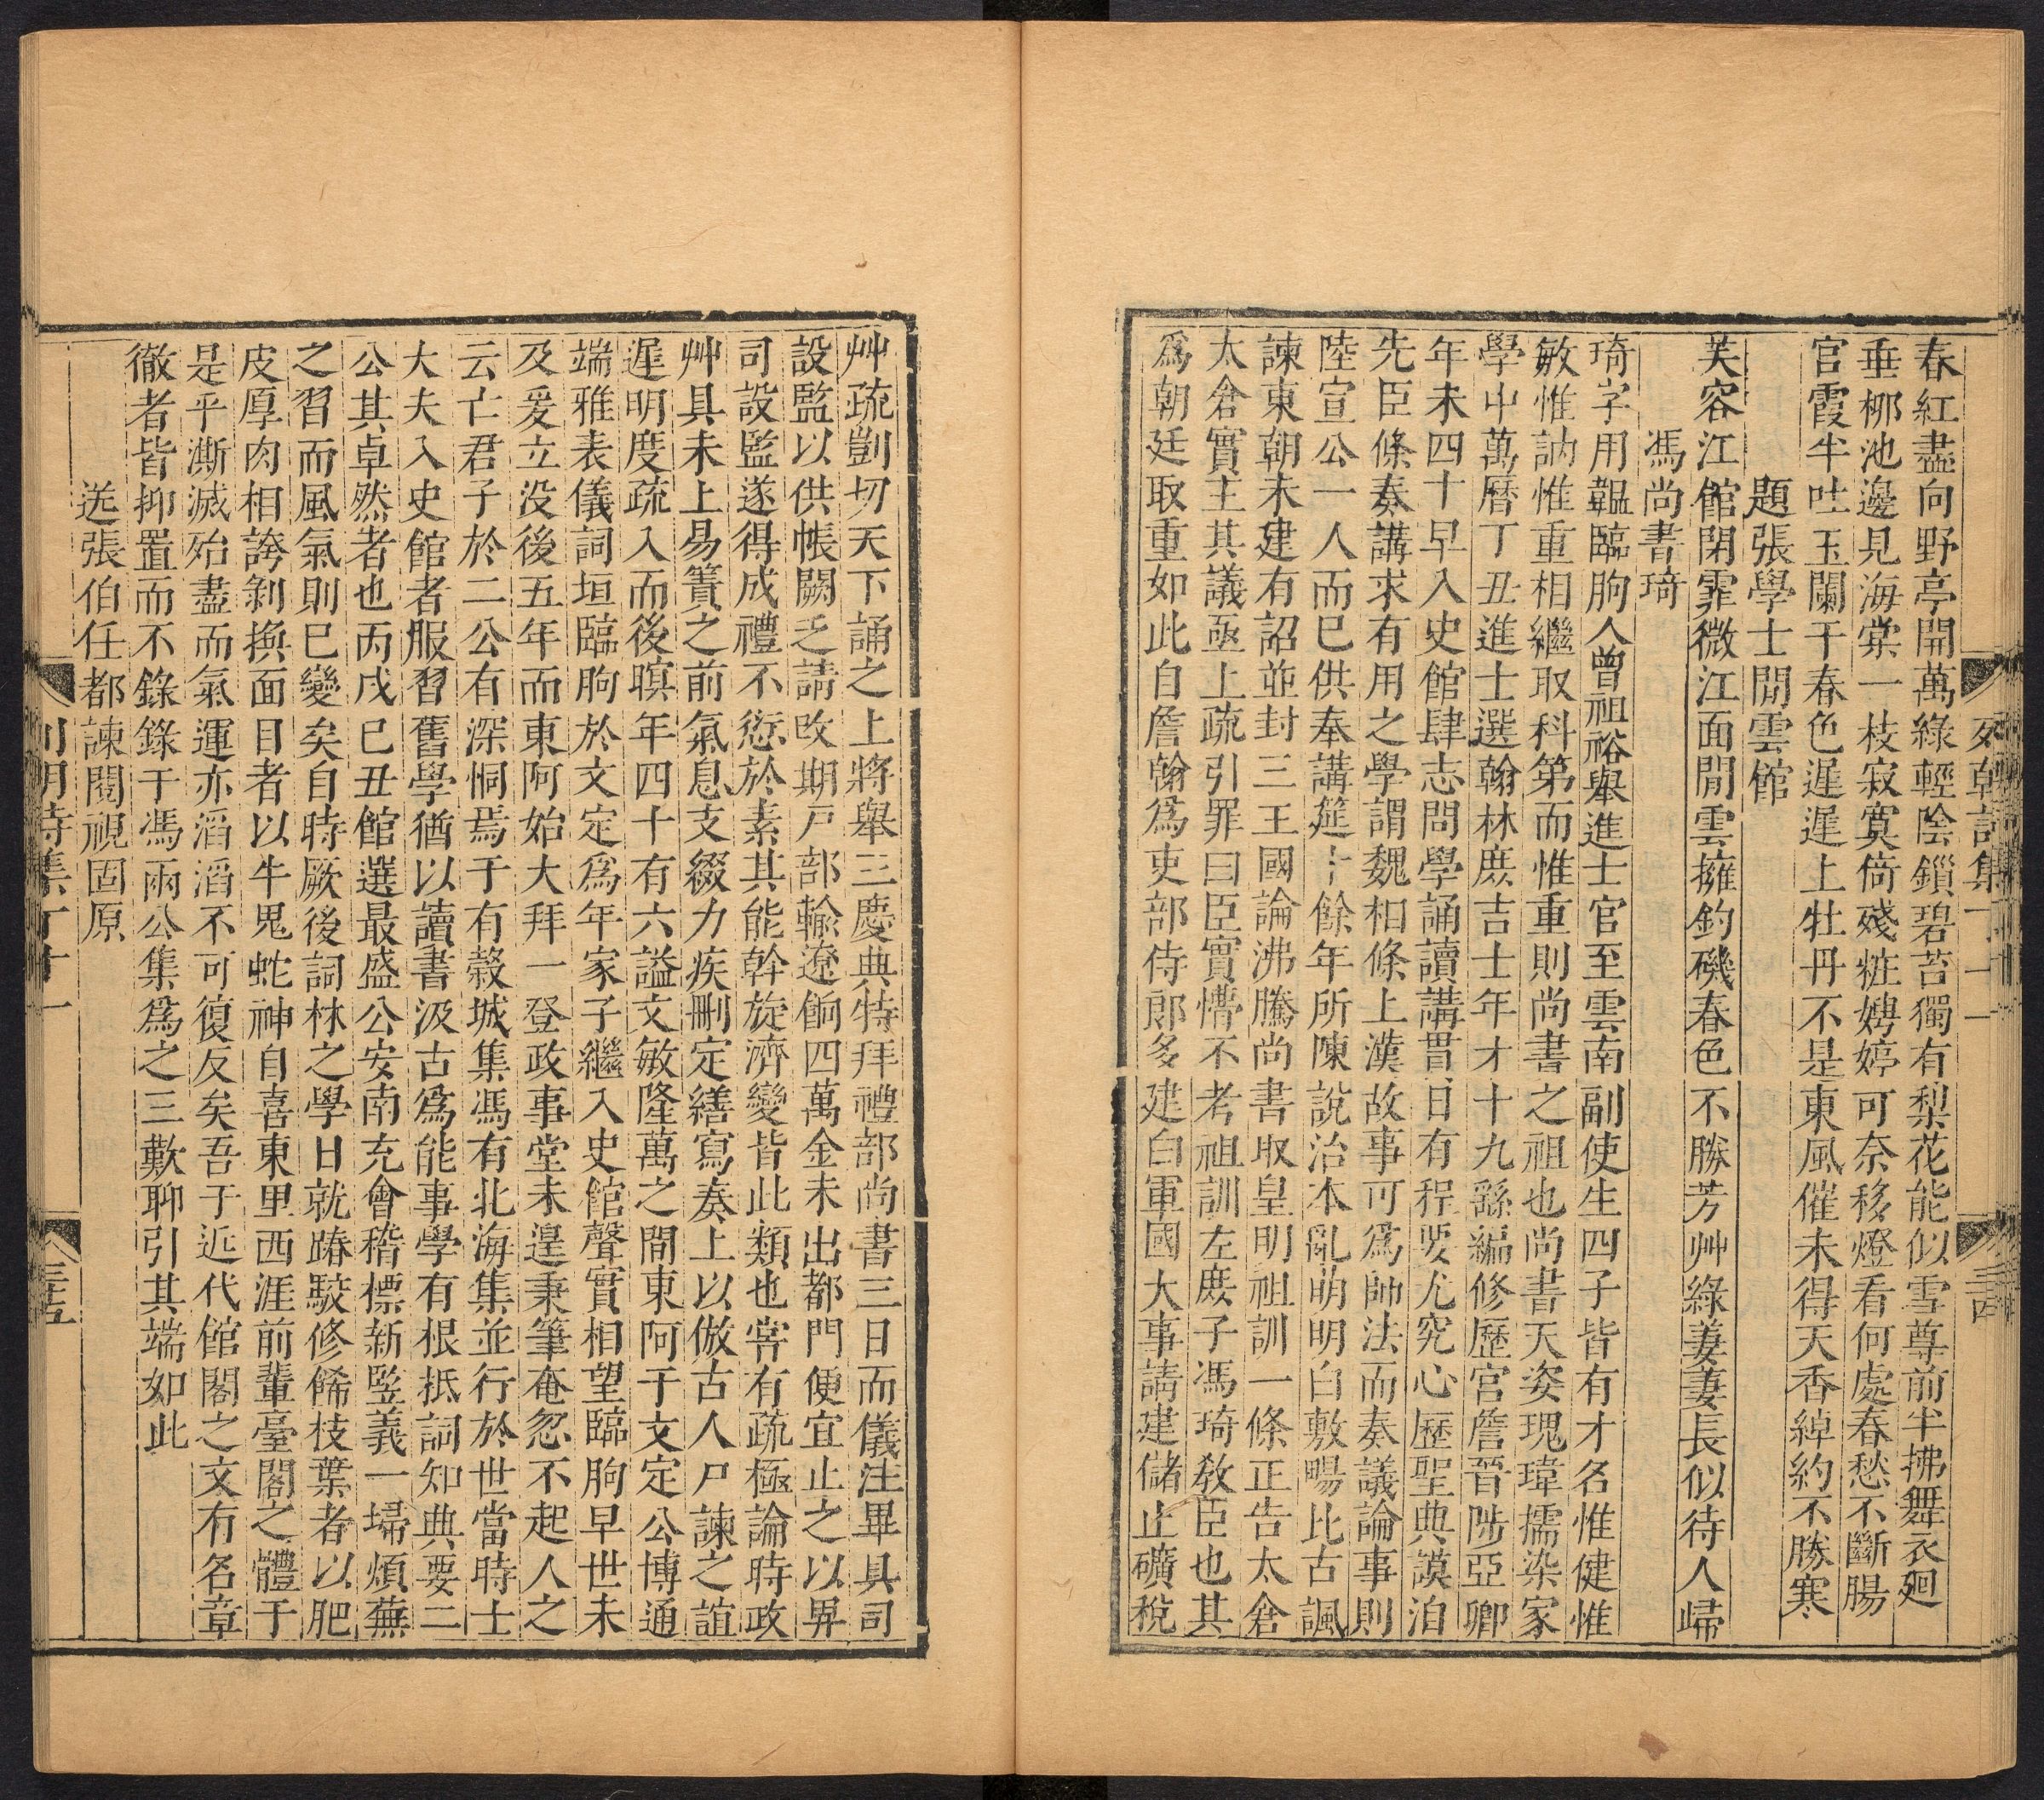 春紅盡向野亭開萬綠輕陰鎖碧苔獨有梨花能似雪尊前半拂舞衣廻
垂柳池邊見海棠一枝寂寞倚殘粧娉婷可奈移燈看何處春愁不斷腸
官霞半吐玉闌干春色遲遲上牡丹不是東風催未得天香綽約不勝寒
題張學士閒雲館
芙容江館閉霏微江面閒雲擁釣磯春色不勝芳艸綠萋萋長似待人歸
馮尚書琦
琦字用韞臨朐人曾祖裕舉進士官至雲南副使生四子皆有才名惟健惟
敏惟訥惟重相繼取科第而惟重則尚書之祖也尚書天姿瑰瑋擩染家
學中萬曆丁丑進士選翰林庶吉士年才十九繇編修歷宮詹晉陟亞卿
年未四十早入史館肆志問學誦讀講貫日有程要尤究心歷聖典謨洎
先臣條奏講求有用之學謂魏相條上漢故事可為師法而奏議論事則
陸宣公一人而已供奉講筵十餘年所陳說治本亂萌明白敷暢比古諷
諫東朝未建有詔並封三王國論沸騰尚書取皇明祖訓一條正告太倉
太倉實主其議亟上疏引罪曰臣實懵不考祖訓左庶子馮琦敎臣也其
爲朝廷取重如此自詹翰爲吏部侍郎多建白軍國大事請建儲止礦稅
艸疏剴切天下誦之上將舉三慶典特拜禮部尚書三日而儀注畢具司
設監以供帳闕乏請改期戸部輸遼餉四萬金未出都門便宜止之以畀
司設監遂得成禮不愆於素其能幹旋濟變皆此類也甞有疏極論時政
艸具未上易簀之前氣息支綴力疾刪定繕寫奏上以倣古人尸諫之誼
遲明度疏入而後暝年四十有六謚文敏隆萬之間東阿于文定公博通
端雅表儀詞垣臨朐於文定爲年家子繼入史館聲實相望臨朐早世未
及爰立没後五年而東阿始大拜一登政事堂未遑秉筆奄忽不起人之
云亡君子於二公有深恫焉于有榖城集馮有北海集並行於世當時士
大夫入史館者服習舊學猶以讀書汲古爲能事學有根抵詞知典要二
公其卓然者也丙戌巳丑館選最盛公安南充會稽標新竪義一埽煩蕪
之習而風氣則已變矣自時厥後詞林之學日就踳駮修餙枝葉者以肥
皮厚肉相誇剝換面目者以牛鬼蛇神自喜東里西涯前輩臺閣之體于
是乎澌滅殆盡而氣運亦滔滔不可復反矣吾于近代館閣之文有名章
徹者皆抑置而不錄錄于馮兩公集爲之三歎聊引其端如此
送張伯任都諫閱視固原